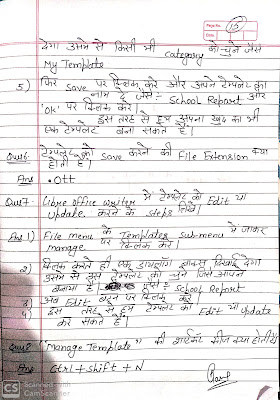 Page No. 15
Date
देगा उसमे से किसी भी category को चुने जैसे
My Template
5) फिर save पर क्लिक करे और अपने टेम्पलेट का
नाम दे जैसे:- School Report और
'ok' पर क्लिक करे।
इस तरह से हम अपना खुद का भी
एक टेम्पलेट बना सकते है।
Que6. टेम्पलेट को save करने की File Extension क्या
होती है।
Ans .Ott
Que7. Libre office writer में टेम्पलेट को Edit या
Update. करने के steps लिखे।
Ans 1) File menu के Templates sub-menu में जाकर
manage पर क्लिक करे।
2) क्लिक करते ही एक डायलॉग बॉक्स दिखाई देगा
उसमे से उस टेम्पलेट को चुने जिसे आपने
बनाया है। जैसे:- School Report
3) अब Edit बटन पर क्लिक करे।
4) इस तरह से हम टेम्पलेट को Edit या Update
कर सकते है।
Que8 "Manage Template" की शार्टकट कीज क्या होती है
Ans Ctrl + Shift + N
CS Scanned with
CamScanner